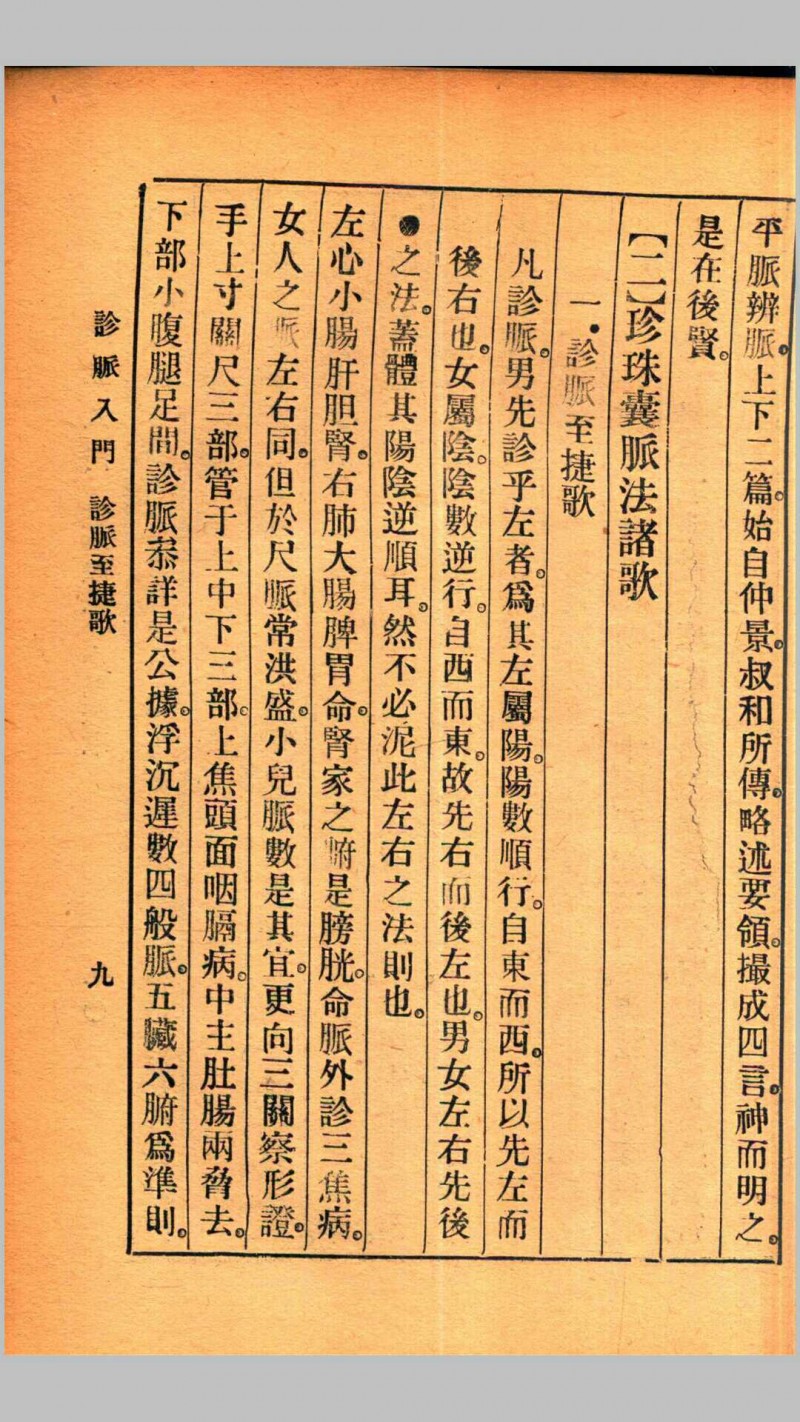 平脈辨脈。上下二篇。始自仲景。叔和所傳。略述要領。撮成四言。神而明之。
是在後賢。
【二】珍珠囊脈法諸歌
一•診脈至捷歌
凡診脈。男先診乎左者。爲其左屬陽。陽數順行。自東而西。所以先左而
後右也。女屬陰。陰數逆行。自西而東。故先右而後左也。男女左右先後
●之法。蓋體其陽陰逆順耳。然不必泥此左右之法則也。
左心小腸肝胆腎。右肺大腸脾胃命。腎家之腑是膀胱。命脈外診三焦病。
女人之脈左右同。但於尺脈常洪盛。小兒脈數是其宜。更向三關察形證。
手上寸關尺三部。管于上中下三部。上焦頭面咽膈病。中主肚腸兩脅去。
下部小腹腿足間。診脈叅詳是公據。浮沉遲數四般脈。五臟六腑爲準則。
診脈入門 診脈至捷歌
九